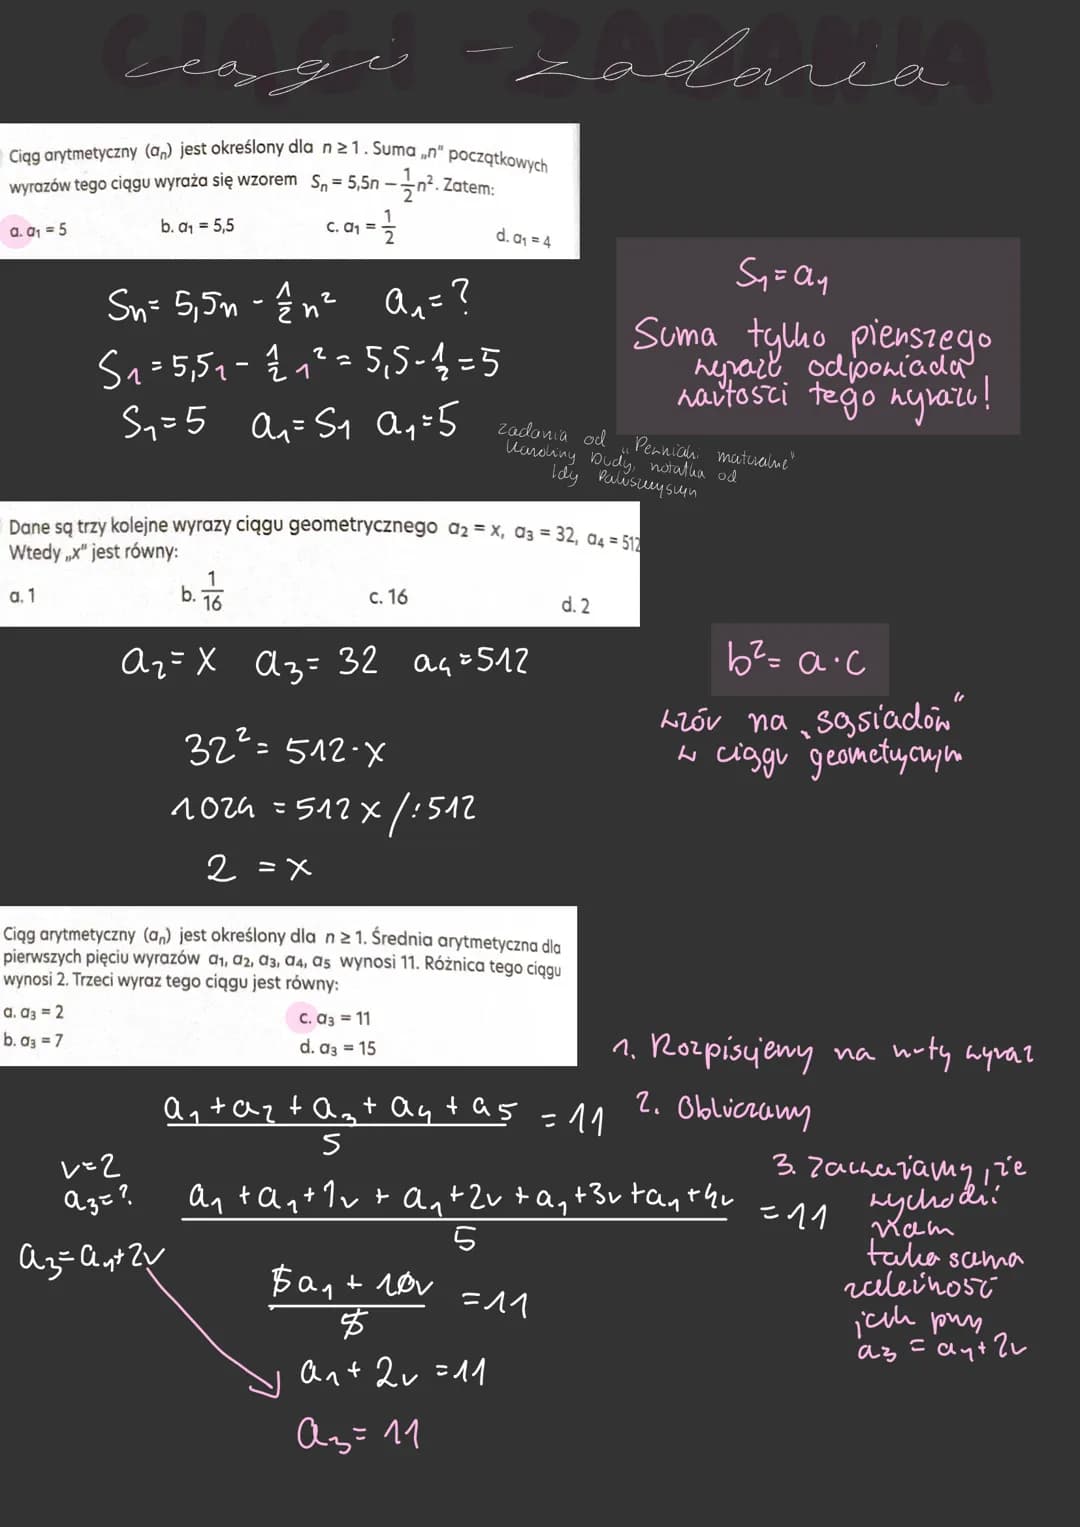 CIĄGI - ZADANIA
ciągi - zadania
Ciąg arytmetyczny (aₙ) jest określony dla n ≥ 1. Suma „n" początkowych
wyrazów tego ciągu wyraża się wzorem Sₙ = 5,5n - 1/2 n². Zatem:
a. a₁ = 5 b. a₁ = 5,5 c. a₁ = 1/2 d. a₁ = 4
Sₙ = 5,5n - 1/2 n² a₁ = ?
S₁ = 5,5₁ - 1/2 1² = 5,5 - 1/2 = 5
S₁ = 5 a₁ = S₁ a₁ = 5
S₁ = a₁
Suma tylko pierwszego
wyrazu odpowiada
wartości tego wyrazu!
zadania od „Pewniaki maturalne"
Karoliny Dudy, notatka od
Idy
Dane są trzy kolejne wyrazy ciągu geometrycznego a₂ = x, a₃ = 32, a₄ = 512
Wtedy „x" jest równy:
a. 1 b. 1/16 c. 16 d. 2
a₂ = x a₃ = 32 a₄ = 512
32² = 512·x
1024 = 512x /:512
2 = x
b² = a·c
wzór na „sąsiadów"
w ciągu geometrycznym
Ciąg arytmetyczny (aₙ) jest określony dla n ≥ 1. Średnia arytmetyczna dla
pierwszych pięciu wyrazów a₁, a₂, a₃, a₄, a₅ wynosi 11. Różnica tego ciągu
wynosi 2. Trzeci wyraz tego ciągu jest równy:
a. a₃ = 2 c. a₃ = 11
b. a₃ = 7 d. a₃ = 15
1. Rozpisujemy na n-ty wyraz
2. Obliczamy
3. Zauważamy, że
wychodzi
nam
taka sama
zależność
jak przy
a₃ = a₁ + 2r
(a₁ + a₂ + a₃ + a₄ + a₅)/5 = 11
r = 2
a₃ = ?
(a₁ + a₁ + 1r + a₁ + 2r + a₁ + 3r + a₁ + 4r)/5 = 11
a₃ = a₁ + 2r
(5a₁ + 10r)/5 = 11
a₁ + 2r = 11
a₃ = 11